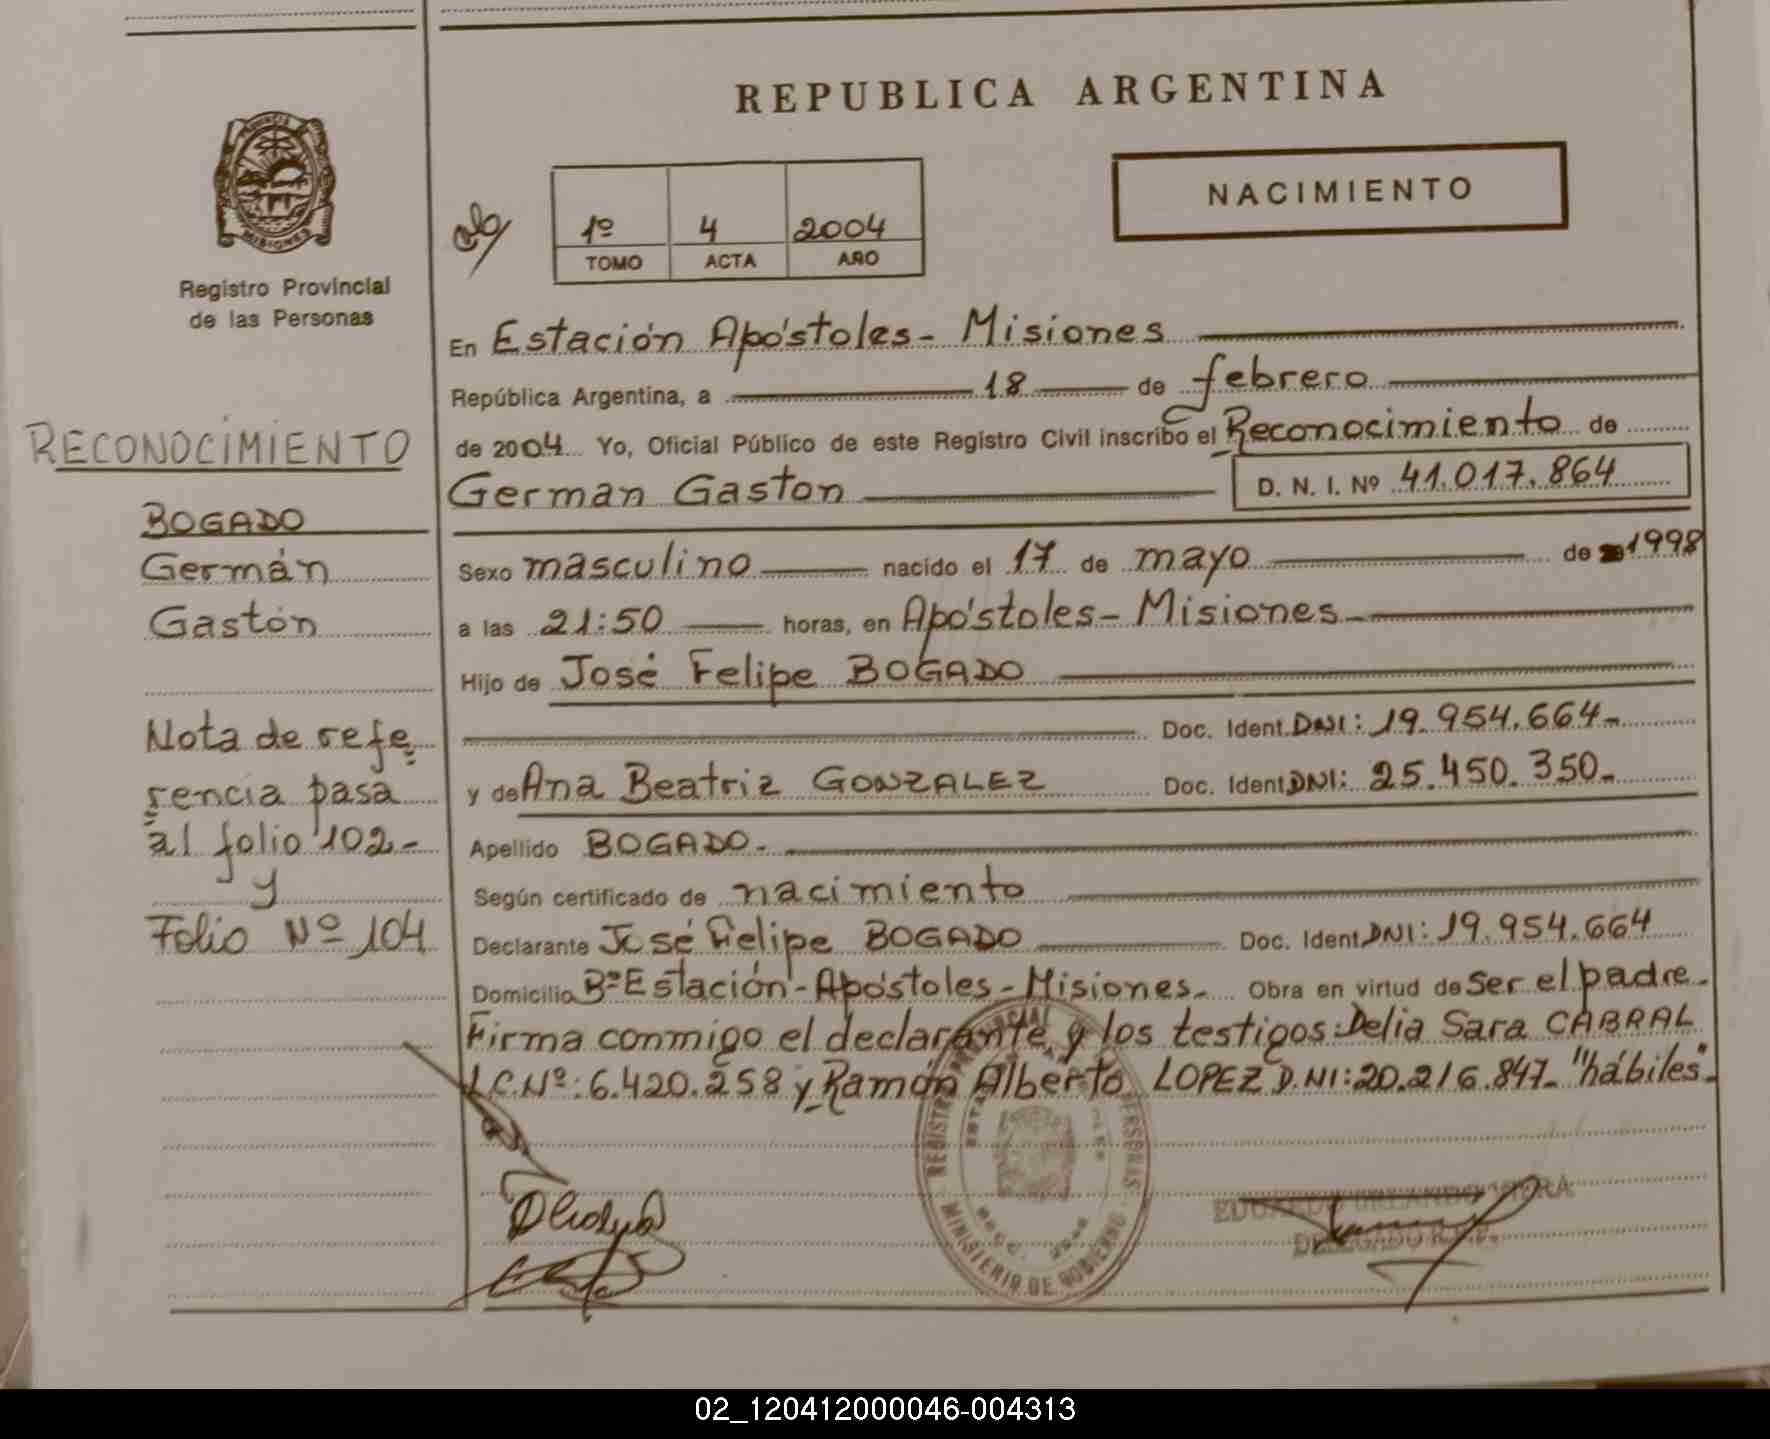 REPUBLICA ARGENTINA
NACIMIENTO
1º 4 2004
TOMO ACTA AÑO
PROVINCIA
MISIONES
Registro Provincial
de las Personas
RECONOCIMIENTO
BOGADO
Germán
Gastón
Nota de refe
rencia pasa
al folio 102-
y
Folio Nº 104
En Estación Apóstoles- Misiones
República Argentina, a 18 de febrero
de 2004 Yo, Oficial Público de este Registro Civil inscribo el Reconocimiento de
German Gaston D. N. I. Nº 41.017.864
Sexo masculino nacido el 17 de mayo de 1998
a las 21:50 horas, en Apóstoles- Misiones
Hijo de José Felipe BOGADO
Doc. Ident. DNI: 19.954.664-
y de Ana Beatriz GONZALEZ Doc. Ident DNI: 25.450.350-
Apellido BOGADO-
Según certificado de nacimiento
Declarante José Felipe BOGADO Doc. Ident DNI: 19.954.664
Domicilio Bº Estación - Apóstoles - Misiones- Obra en virtud de Ser el padre-
Firma conmigo el declarante y los testigos: Delia Sara CABRAL
L.C.Nº: 6.420.258 y Ramón Alberto LOPEZ D.NI: 20.216.847- "hábiles"-
MINISTERIO DE GOBIERNO
DELEGADO R.P.P.
02_120412000046-004313